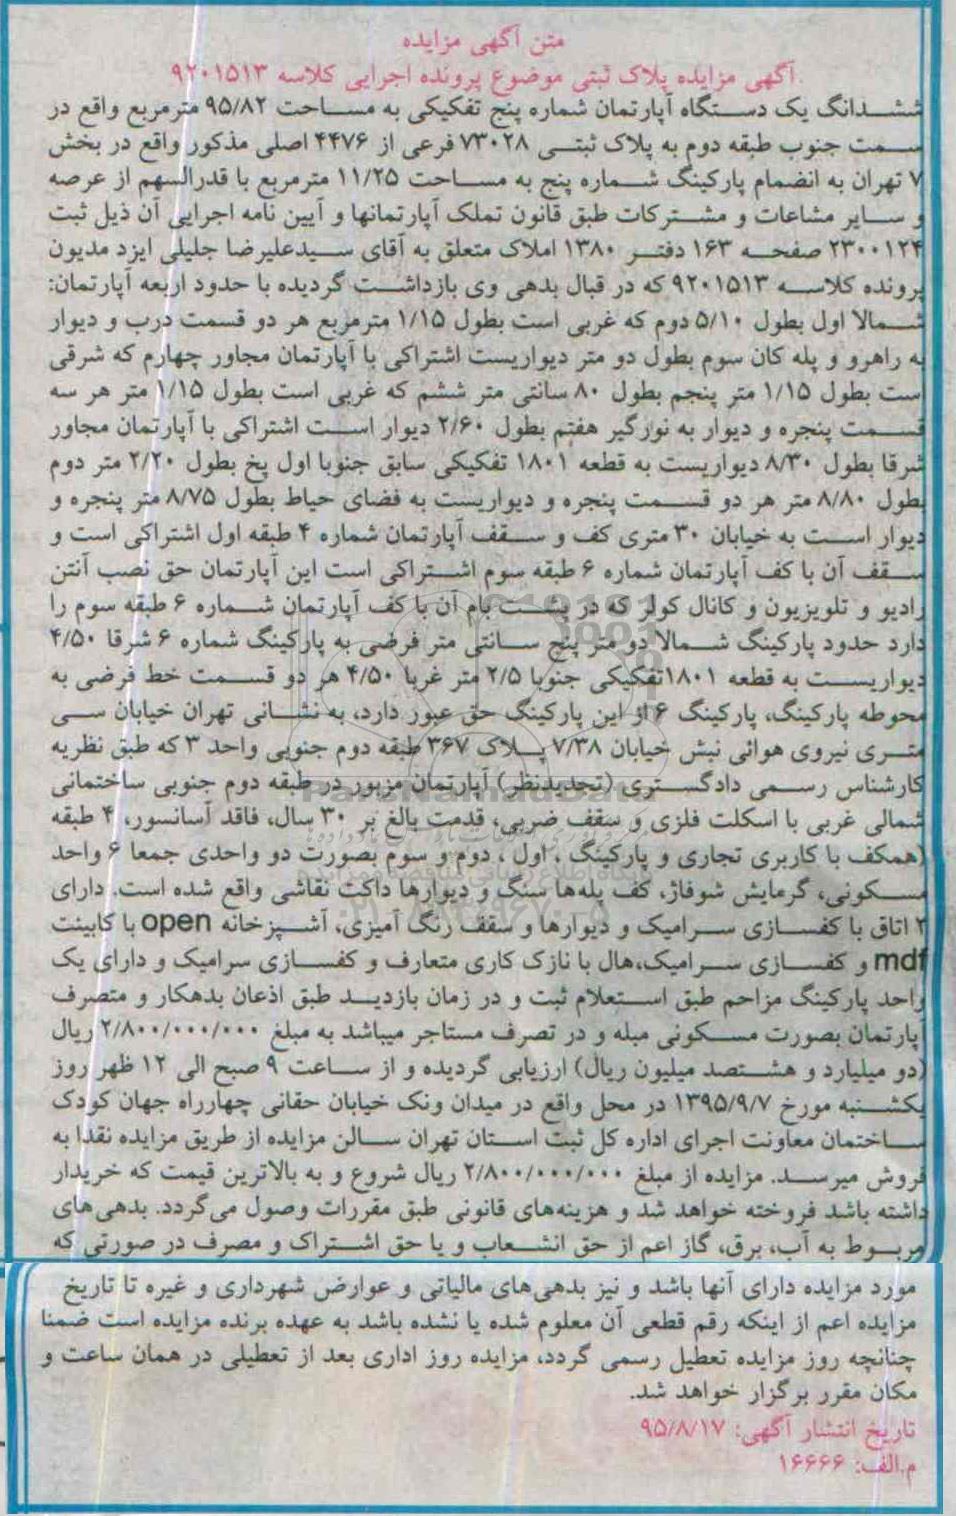 متن آگهی مزایده
آگهی مزایده پلاک ثبتی موضوع پرونده اجرایی کلاسه ۹۲۰۱۵۱۳
ششدانگ یک دستگاه آپارتمان شماره پنج تفکیکی به مساحت ۹۵/۸۲ مترمربع واقع در
سمت جنوب طبقه دوم به پلاک ثبتی ۷۳۰۲۸ فرعی از ۴۴۷۶ اصلی مذکور واقع در بخش
۷ تهران به انضمام پارکینگ شماره پنج به مساحت ۱۱/۲۵ مترمربع با قدرالسهم از عرصه
و سایر مشاعات و مشترکات طبق قانون تملک آپارتمانها و آیین نامه اجرایی آن ذیل ثبت
۲۳۰۰۱۲۴ صفحه ۱۶۳ دفتر ۱۳۸۰ املاک متعلق به آقای سیدعلیرضا جلیلی ایزد مدیون
پرونده کلاسه ۹۲۰۱۵۱۳ که در قبال بدهی وی بازداشت گردیده با حدود اربعه آپارتمان:
شمالا اول بطول ۵/۱۰ دوم که غربی است بطول ۱/۱۵ مترمربع هر دو قسمت درب و دیوار
به راهرو و پله کان سوم بطول دو متر دیواریست اشتراکی با آپارتمان مجاور چهارم که شرقی
است بطول ۱/۱۵ متر پنجم بطول ۸۰ سانتی متر ششم که غربی است بطول ۱/۱۵ متر هر سه
قسمت پنجره و دیوار به نورگیر هفتم بطول ۲/۶۰ دیوار است اشتراکی با آپارتمان مجاور
شرقا بطول ۸/۳۰ دیواریست به قطعه ۱۸۰۱ تفکیکی سابق جنوبا اول پخ بطول ۲/۲۰ متر دوم
بطول ۸/۸۰ متر هر دو قسمت پنجره و دیواریست به فضای حیاط بطول ۸/۷۵ متر پنجره و
دیوار است به خیابان ۳۰ متری کف و سقف آپارتمان شماره ۴ طبقه اول اشتراکی است و
سقف آن با کف آپارتمان شماره ۶ طبقه سوم اشتراکی است این آپارتمان حق نصب آنتن
رادیو و تلویزیون و کانال کولر که در پشت بام آن با کف آپارتمان شماره ۶ طبقه سوم را
دارد حدود پارکینگ شمالا دو متر پنج سانتی متر فرضی به پارکینگ شماره ۶ شرقا ۴/۵۰
دیواریست به قطعه ۱۸۰۱ تفکیکی جنوبا ۲/۵ متر غربا ۴/۵۰ هر دو قسمت خط فرضی به
محوطه پارکینگ، پارکینگ ۶ از این پارکینگ حق عبور دارد، به نشانی تهران خیابان سی
متری نیروی هوائی نبش خیابان ۷/۳۸ پلاک ۳۶۷ طبقه دوم جنوبی واحد ۳ که طبق نظریه
کارشناس رسمی دادگستری (تجدیدنظر) آپارتمان مزبور در طبقه دوم جنوبی ساختمانی
شمالی غربی با اسکلت فلزی و سقف ضربی، قدمت بالغ بر ۳۰ سال، فاقد آسانسور، ۴ طبقه
(همکف با کاربری تجاری و پارکینگ ، اول ، دوم و سوم بصورت دو واحدی جمعا ۶ واحد
مسکونی، گرمایش شوفاژ، کف پله‌ها سنگ و دیوارها داکت نقاشی واقع شده است. دارای
۲ اتاق با کفسازی سرامیک و دیوارها و سقف رنگ آمیزی، آشپزخانه open با کابینت
mdf و کفسازی سرامیک،هال با نازک کاری متعارف و کفسازی سرامیک و دارای یک
واحد پارکینگ مزاحم طبق استعلام ثبت و در زمان بازدید طبق اذعان بدهکار و متصرف
آپارتمان بصورت مسکونی مبله و در تصرف مستاجر میباشد به مبلغ ۲/۸۰۰/۰۰۰/۰۰۰ ریال
(دو میلیارد و هشتصد میلیون ریال) ارزیابی گردیده و از ساعت ۹ صبح الی ۱۲ ظهر روز
یکشنبه مورخ ۱۳۹۵/۹/۷ در محل واقع در میدان ونک خیابان حقانی چهارراه جهان کودک
ساختمان معاونت اجرای اداره کل ثبت استان تهران سالن مزایده از طریق مزایده نقدا به
فروش میرسد. مزایده از مبلغ ۲/۸۰۰/۰۰۰/۰۰۰ ریال شروع و به بالاترین قیمت که خریدار
داشته باشد فروخته خواهد شد و هزینه‌های قانونی طبق مقررات وصول می‌گردد. بدهی‌های
مربوط به آب، برق، گاز اعم از حق انشعاب و یا حق اشتراک و مصرف در صورتی که
مورد مزایده دارای آنها باشد و نیز بدهی‌های مالیاتی و عوارض شهرداری و غیره تا تاریخ
مزایده اعم از اینکه رقم قطعی آن معلوم شده یا نشده باشد به عهده برنده مزایده است ضمنا
چنانچه روز مزایده تعطیل رسمی گردد، مزایده روز اداری بعد از تعطیلی در همان ساعت و
مکان مقرر برگزار خواهد شد.
تاریخ انتشار آگهی: ۹۵/۸/۱۷
م.الف: ۱۶۶۶۶